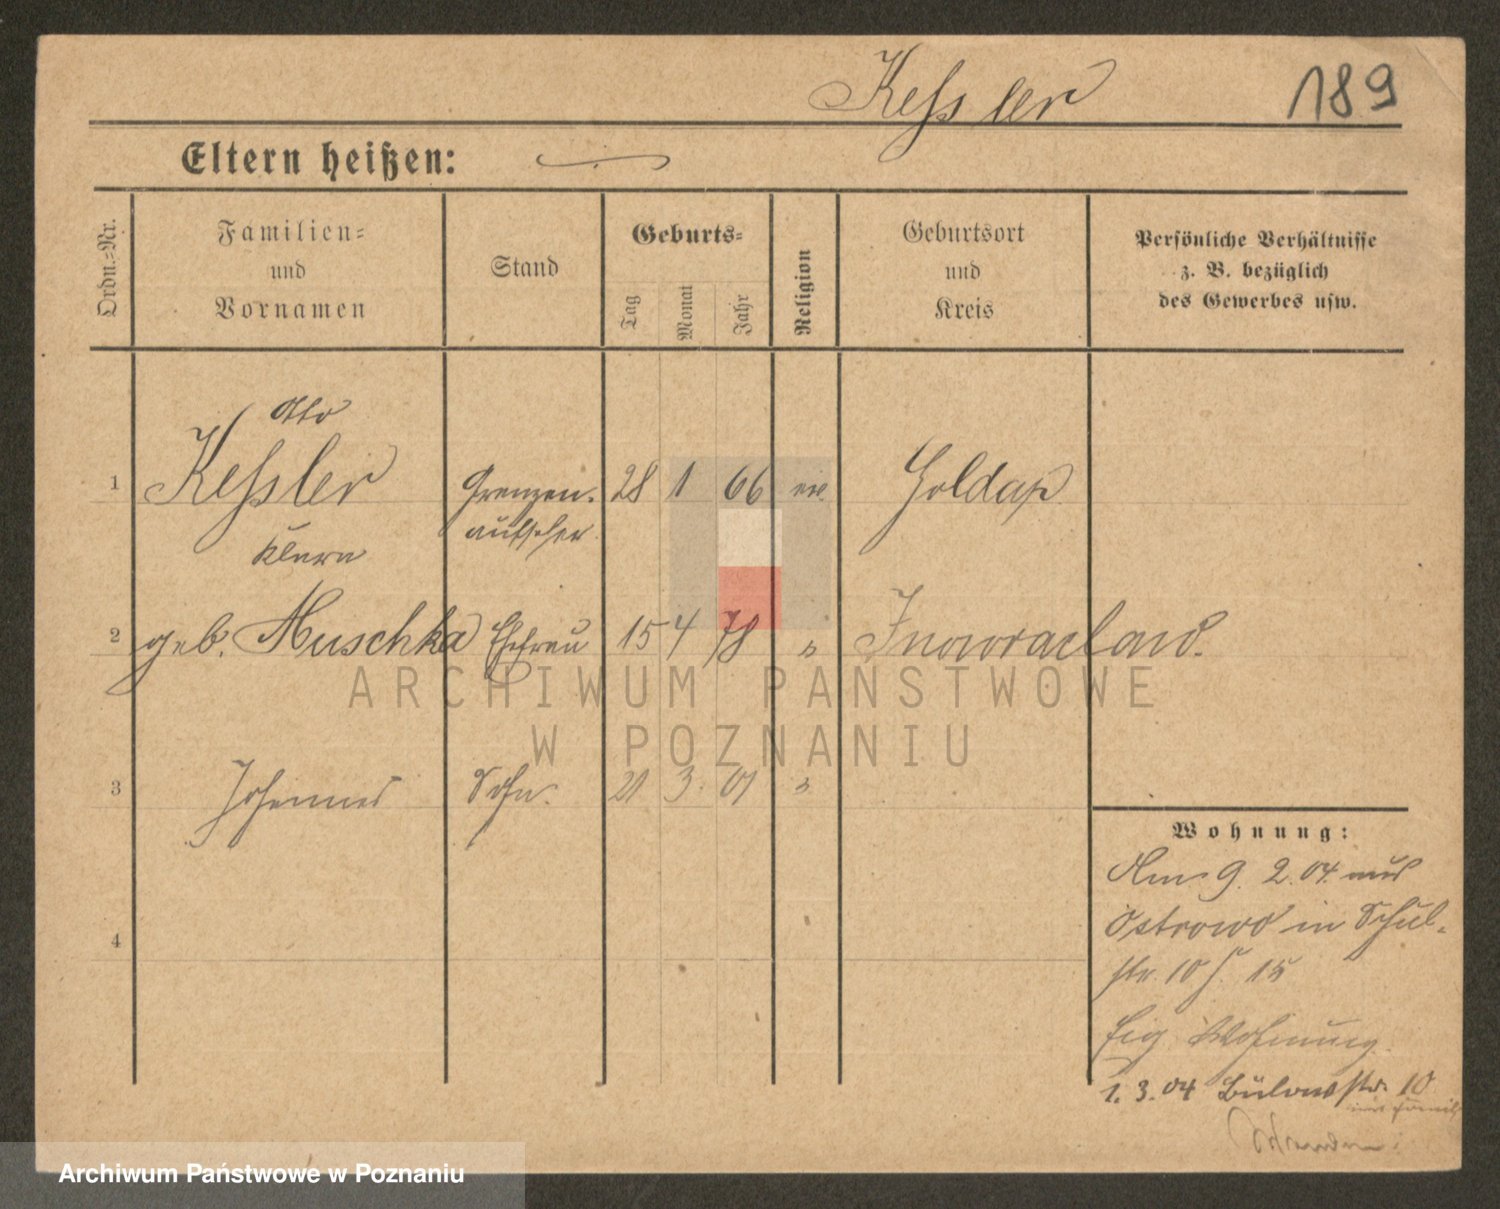 Kessler 189
Eltern heißen:
Ordn.-Nr.
Familien-
und
Vornamen
Stand
Geburts-
Tag
Monat
Jahr
Religion
Geburtsort
und
Kreis
Persönliche Verhältnisse
z. B. bezüglich
des Gewerbes usw.
Otto
1 Kessler Grenzen- 28 1 66 ev. Goldap
aufseher
Klara
2 geb. Muschka Ehefrau 15 4 78 " Inowraclaw.
ARCHIWUM PAŃSTWOWE
W POZNANIU
3 Johannes Sohn. 21 3. 01 "
4
Wohnung:
Am 9. 2. 04. aus
Ostrowo in Schul-
str. 10 15
Eig Wohnung.
1. 3. 04 Bülowstr. 10
Archiwum Państwowe w Poznaniu